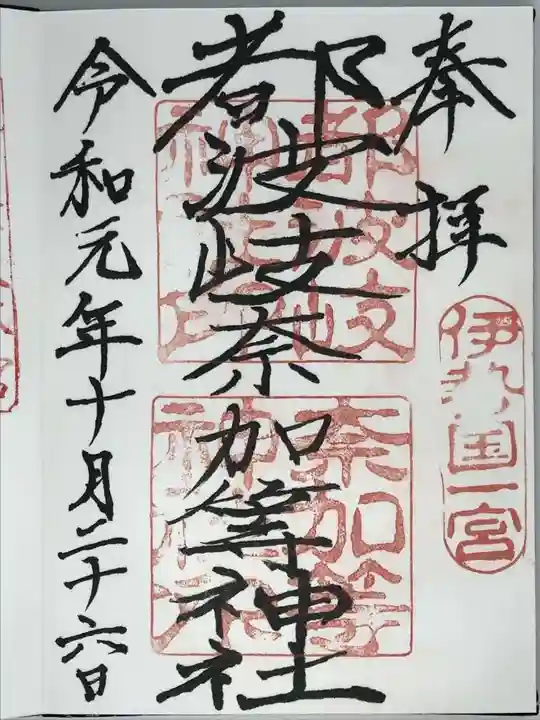 奉拝
伊勢国一宮
都波岐奈加等神社
奈加等
令和元年十月二十六日